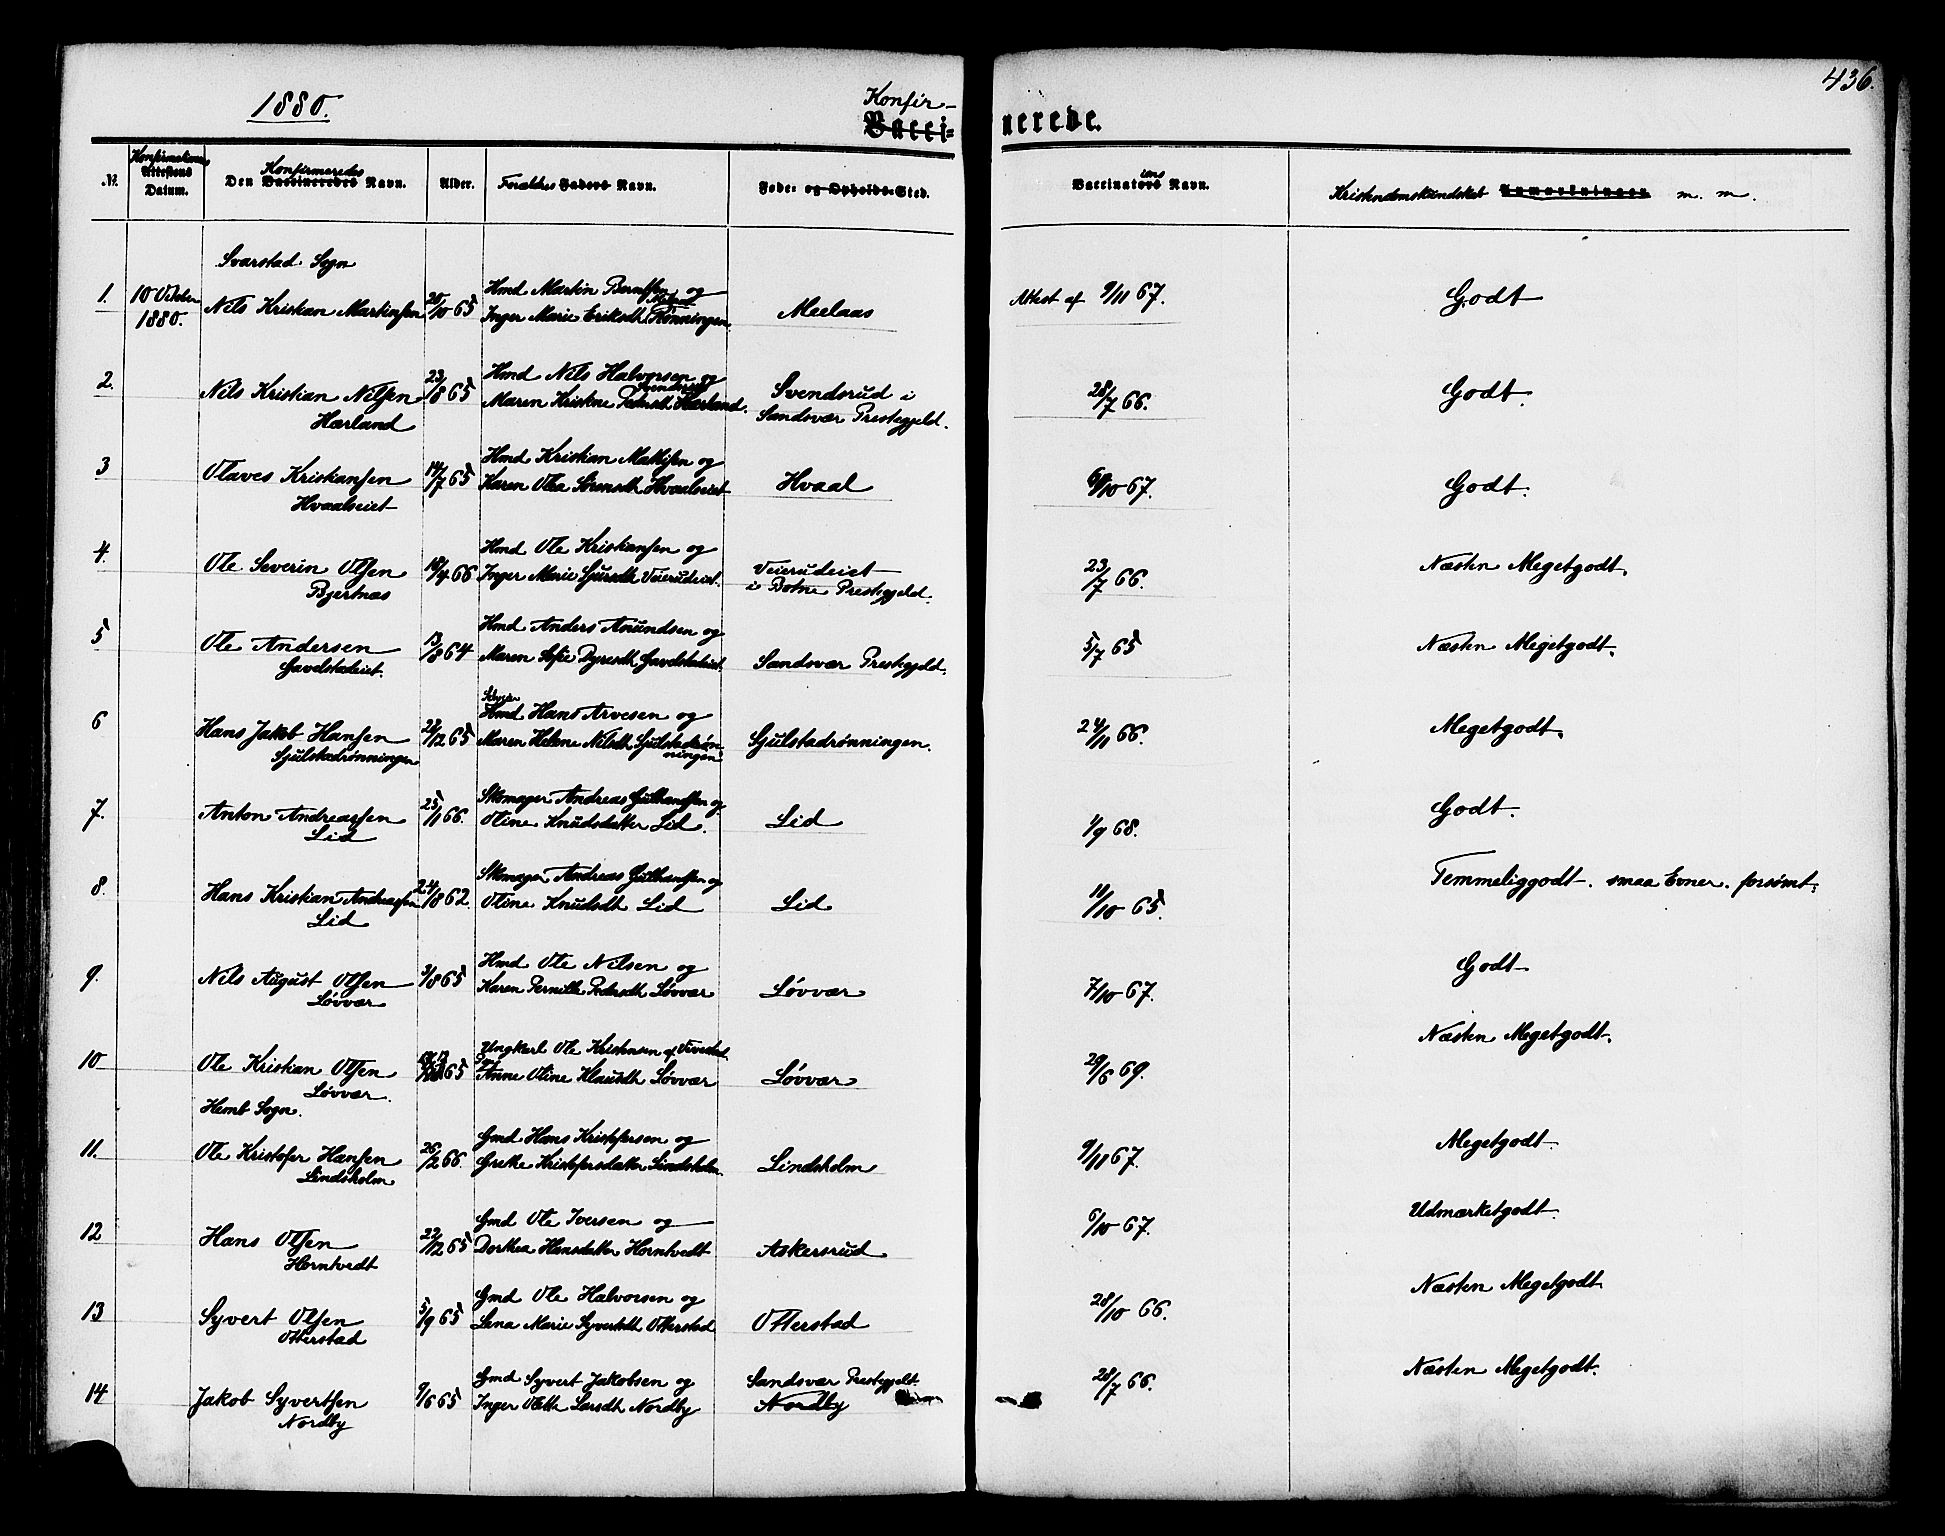 436.
1880.
Konfir-
Vacci= nerede.
№. Konfirmations Attestens Datum. Den Konfirmeredes Vaccineredes Navn. Alder. Forældres Faders Navn. Føde= og Opholds=Sted. Vaccinations Navn. Kristendomskundskab Anmærkninger m. m.
Svarstad Sogn
1. 10 Oktober 1880. Nils Kristian Martinsen 20/10 65 Hmd Martin Berntsen og
Inger Marie Eriksdtr Rønningen. Meelaas Attest af 9/11 67. Godt
2. Nils Kristian Nilsen 23/8 65 Hmd Nils Halvorsen og
Hærland Maren Kristine Pedersdtr Hærland. Svendsrud i
Sandsvær Prestegjeld. 28/7 66. Godt.
3 Olaves Kristiansen 14/7 65 Hmd Kristian Mathisen og
Hvaalseiet Karen Olea Sørensdtr Hvaalseiet Hvaal 6/10 67. Godt.
4. Ole Severin Olsen 18/4 66 Hmd Ole Kristiansen og
Bjertnæs Inger Marie Sjursdtr Veierudeiet. Veierudeiet
i Botne Prestegjeld. 23/7 66. Næsten Megetgodt.
5 Ole Andersen 13/8 64 Hmd Anders Anundsen og
Gavelstadeiet. Maren Sofie Dyresdtr Gavelstadeiet. Sandsvær Prestegjeld. 5/7 65 Næsten Megetgodt.
6 Hans Jakob Hansen 22/12 65 Hmd Hans Arvesen og
Gjulstadrønningen Maren Helene Nilsdtr Gjulstadrøn-
ningen. Gjulstadrønningen. 24/11 66. Megetgodt.
7. Anton Andreassen 25/1 66. Skomager Andreas Gulhansen og
Lid Oline Knudsdatter Lid. Lid 1/9 68. Godt.
8. Hans Kristian Andreassen 24/8 62. Skomager Andreas Gulhansen og
Lid Oline Knudsdtr Lid Lid 11/10 65. Temmeliggodt. smaa Evner. forsømt.
9. Nils August Olsen 3/8 65 Hmd Ole Nilsen og
Løvvar Karen Pernille Pedersdtr Løvvar Løvvar 7/10 67. Godt
10 Ole Kristian Olsen 65 Ungkarl Ole Kristensen af Vivestad
Løvvar. Anne Oline Klausdtr Løvvar Løvvar 29/6 69. Næsten Megetgodt.
Hemb Sogn.
11. Ole Kristofer Hansen 26/2 66. Gmd Hans Kristofersen og
Lindsholm Grethe Kristofersdatter Lindsholm. Lindsholm 9/11 67. Megetgodt.
12 Hans Olsen 22/12 65 Gmd Ole Iversen og
Horntvedt Dorthea Hansdatter Horntvedt Askersrud 6/10 67. Udmærketgodt.
13 Syvert Olsen 5/9 65 Gmd Ole Halvorsen og
Otterstad Lena Marie Syvertsdtr Otterstad Otterstad 28/10 66. Næsten Megetgodt
14 Jakob Syvertsen 9/6 65 Gmd Syvert Jakobsen og
Nordby Inger Olette Larsdtr Nordby Sandsvær Prestegjelt.
Nordby 28/7 66. Næsten Megetgodt.